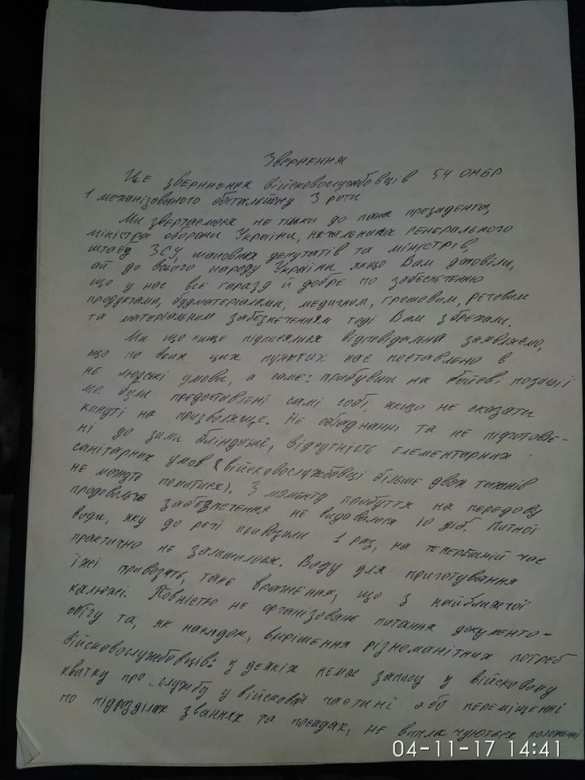 Звернення
Це звернення військовослужбовців 54 ОМБР
1 механізованого батальйону 3 роти
Ми звертаємося не тільки до пана президента,
міністра оборони України, начальника генерального
штабу ЗСУ, шановних депутатів та міністрів,
а й до всього народу України якщо Вам доповіли,
що у нас все гаразд й добре по забезпеченню
продуктами, будматеріалами, медичним, грошовим, речовим
та матеріальним забезпеченням тоді Вам збрехали.
Ми що нижче підписалися відповідально заявляємо,
що по всих цих пунктах нас поставлено в
не людські умови, а саме: прибувши на бойові позиції
ми були предоставлені самі собі, якщо не сказати
кинуті на призволяще. Не обладнанні та не підготовле-
ні до зими бліндажі, відсутність елементарних
санітарних умов (військовослужбовці більше двох тижнів
не можуть помитися). З моменту прибуття на передову
продовольче забезпечення не видавалося 10 діб. Питної
води, яку до речі привозили 1 раз, на теперішній час
практично не залишилося. Воду для приготування
їжі привозять, таке враження, що з найближчої
калюжі. Повністю не організоване питання документо-
обігу та, як наслідок, вирішення різноманітних потреб
військовослужбовців: у деяких немає запису у військовому
квитку про службу у військовій частині або переміщенні
по підрозділах званнях та посадах, не виплачуються
04-11-17 14:41